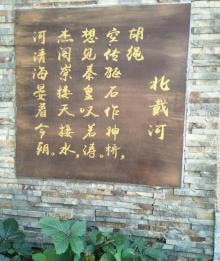 北戴河
胡绳
空传驱石作神桥,
想见秦皇叹涛。
杰阁崇楼天接水,
河清海晏看今朝。